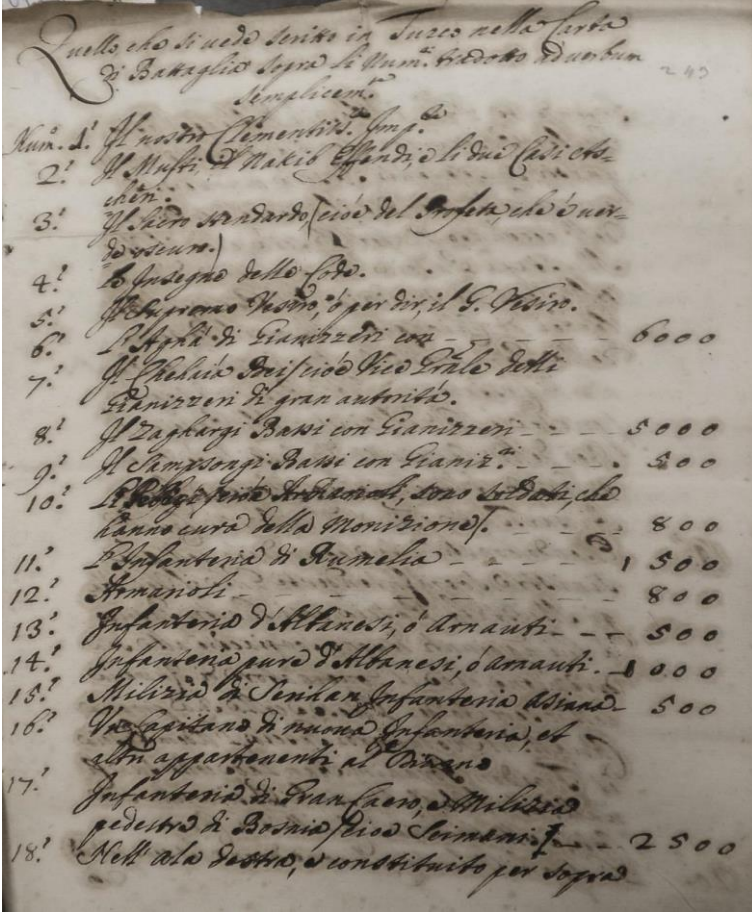 Quello che si vede scritto in Turco nella Carta
di Battaglia sopra li Num.i tradotto ad verbum
semplicem.te
243
Num.o 1.o Il nostro Clementiss.o Imp.re
2.o Il Mufti, il Nakib Effendi, e li due Casi As-
cheri.
3.o Il Sacro stendardo, (cioè del Profeta, che è ver-
de oscuro.)
4.o Le Insegne delle Code.
5.o Il Supremo Vesiro, ó per dir, il G. Vesiro.
6.o L'Aghà di Gianizzeri con - - - - - 6000
7.o Il Chehaià Bei (cioè Vice Grãle detti
Gianizzeri di gran autorità.
8.o Il Zaghargi Bassi con Gianizzeri - - - 5000
9.o Il Sampsongi Bassi con Gianiz.ri - - - 500
10.o Armarioli, sono soldati, che
hanno cura della Monizione). - - - - 800
11.o L'Infanteria di Rumelia - - - - - 1500
12.o Armarioli - - - - - - - - - 800
13.o Infanteria d'Albanesi, ó Arnauti - - - 500
14.o Infanteria pure d'Albanesi, ó Arnauti. - 1000
15.o Milizia di Infanteria Asiana - 500
16.o Un Capitano di nuova Infanteria, et
altri appartenenti al
17.o Infanteria di Gran Caero, e Milizia
pedestre di Bosnia (cioè Seimani.) - - - 2500
18.o Nell'ala destra, è constituito per sopra